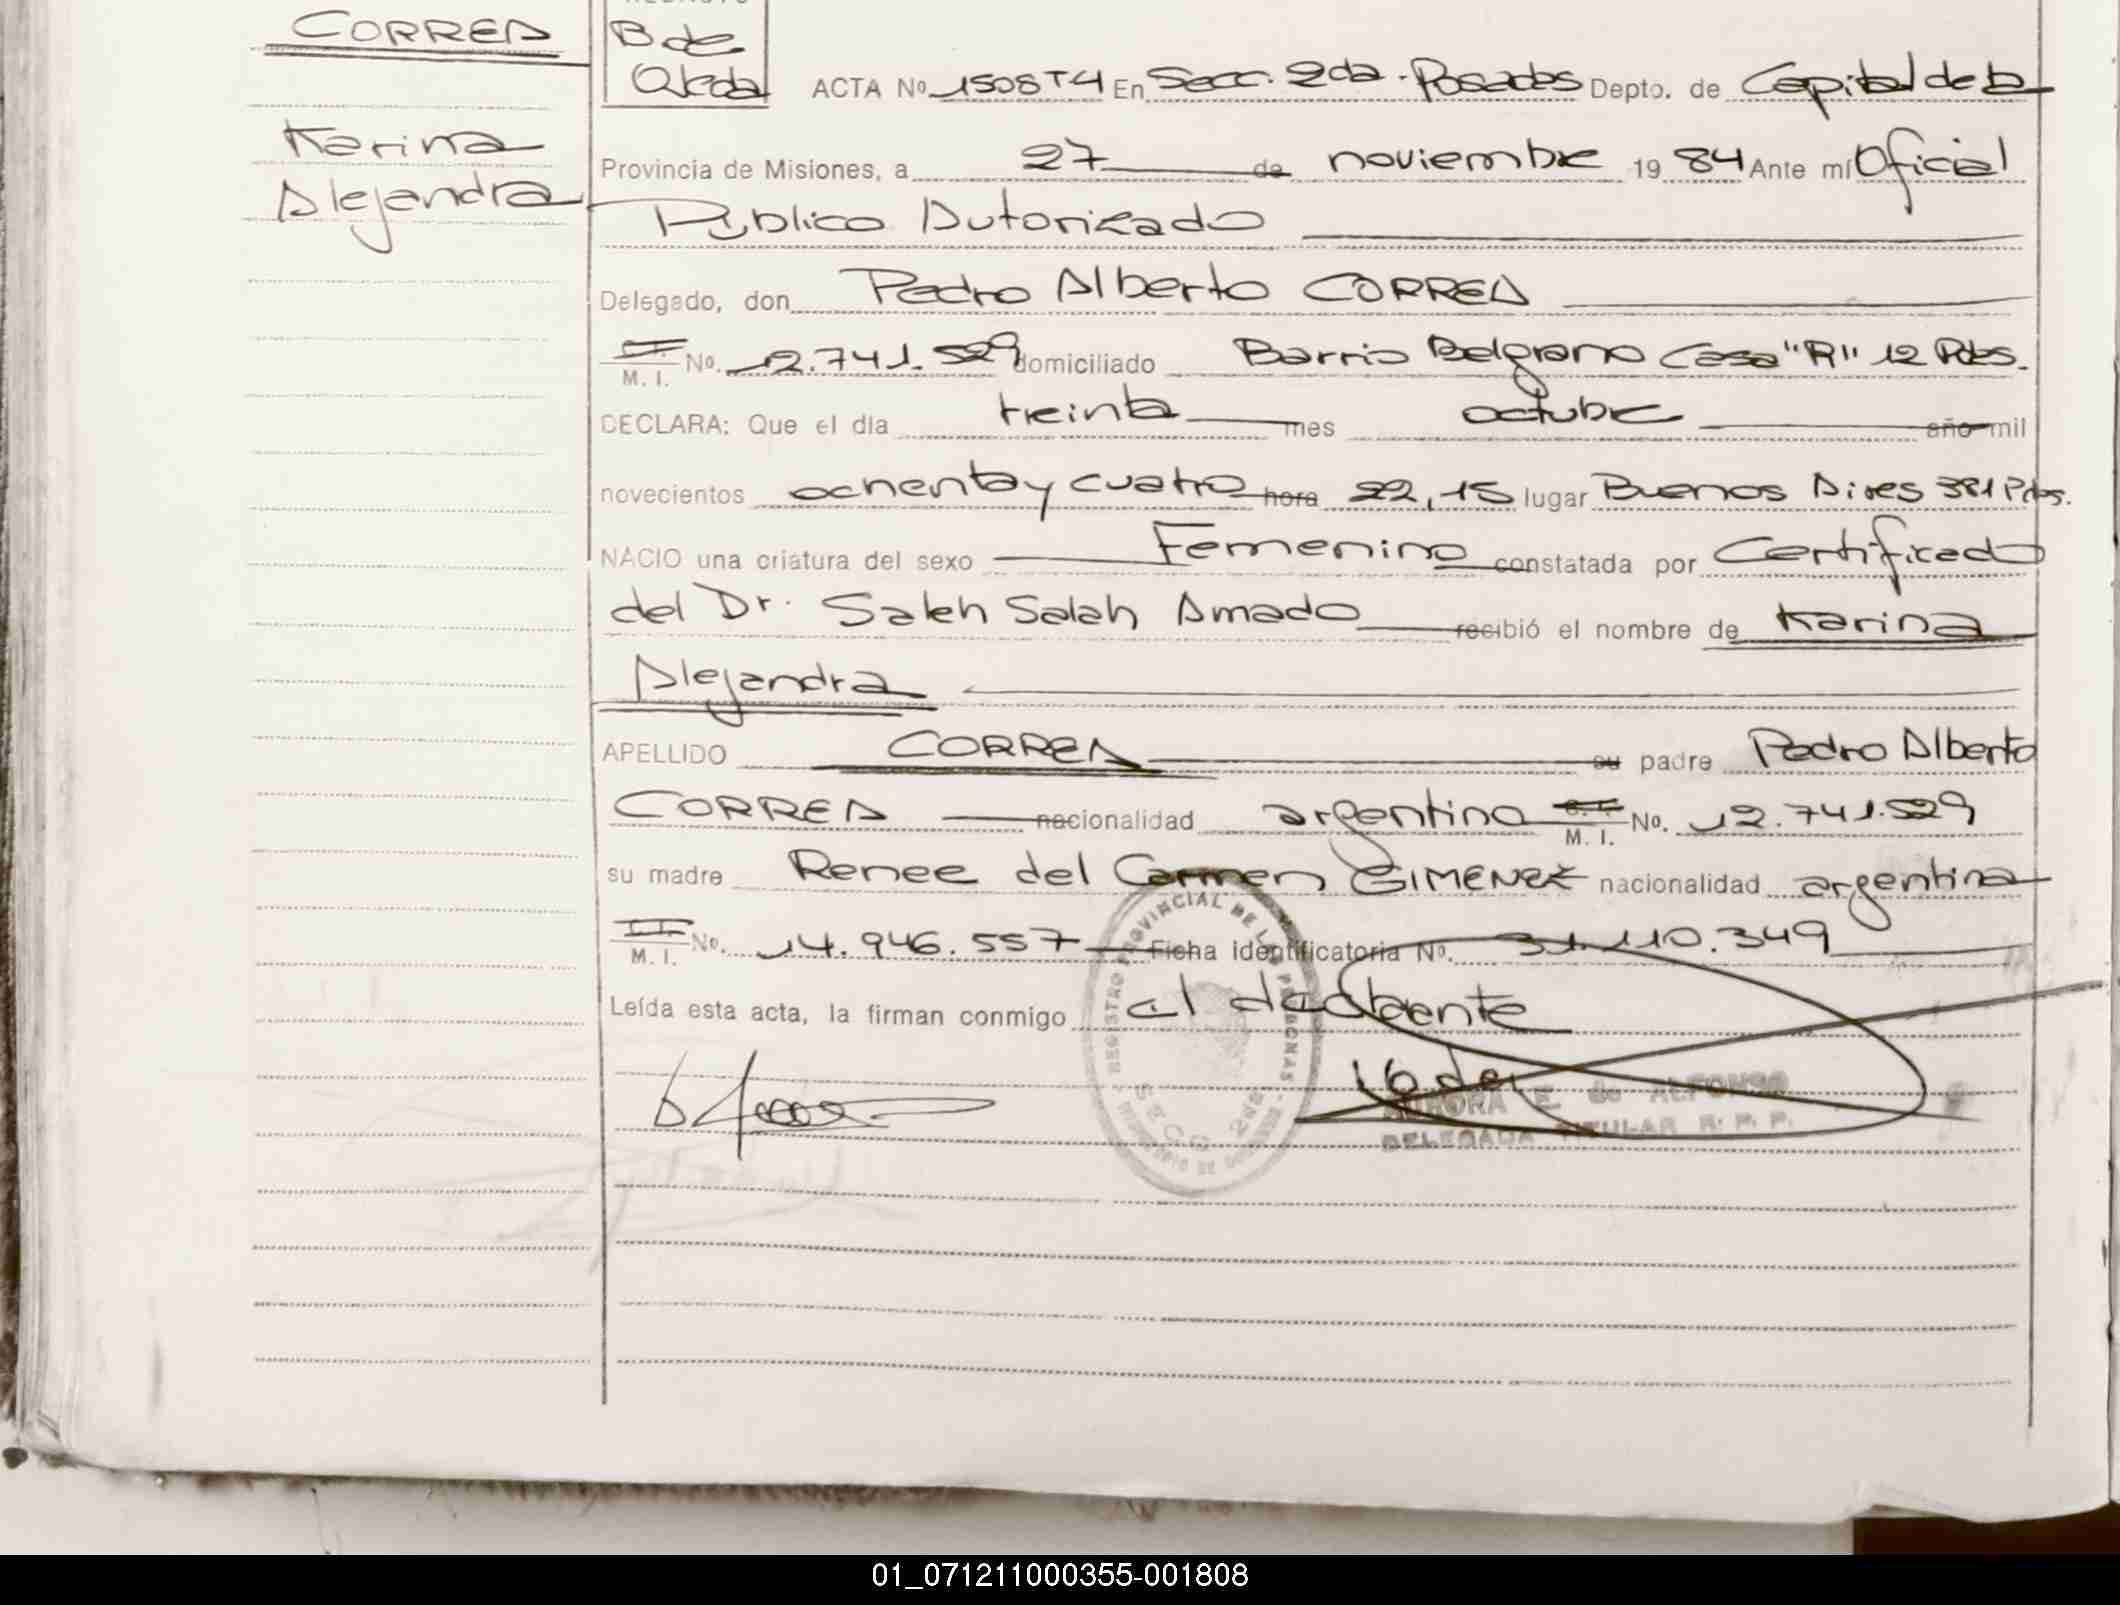 CORREA
Karina
Alejandra
B de
Ojeda
ACTA Nº 1508 T4 En Secc. 2da. Posadas Depto. de Capital de la
Provincia de Misiones, a 27 de noviembre 1984 Ante mí Oficial
Público Autorizado
Delegado, don Pedro Alberto CORREA
M. I. No. 12.741.529 domiciliado Barrio Belgrano Casa "R" 12 Pdas.
DECLARA: Que el día treinta mes octubre año mil
novecientos ochenta y cuatro hora 22,15 lugar Buenos Aires 381 Pdas.
NACIO una criatura del sexo Femenino constatada por Certificado
del Dr. Saleh Salah Amado recibió el nombre de Karina
Alejandra
APELLIDO CORREA su padre Pedro Alberto
CORREA nacionalidad argentino M. I. No. 12.741.529
su madre Renee del Carmen GIMENEZ nacionalidad argentina
M. I. No. 14.946.557 Ficha identificatoria Nº. 31.110.349
Leída esta acta, la firman conmigo el declarante
REGISTRO PROVINCIAL DE LAS PERSONAS
SECC. 2da
AURORA E. de ALFONSO
DELEGADA TITULAR R. P. P.
01_071211000355-001808